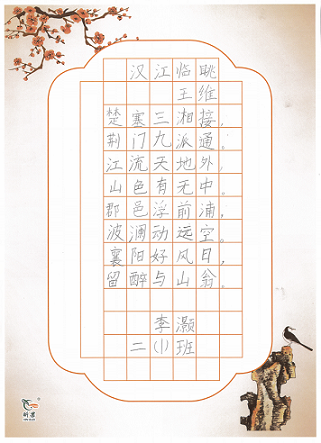 汉江临眺
王维
楚塞三湘接，
荆门九派通。
江流天地外，
山色有无中。
郡邑浮前浦，
波澜动远空。
襄阳好风日，
留醉与山翁。
李灏
二(1)班